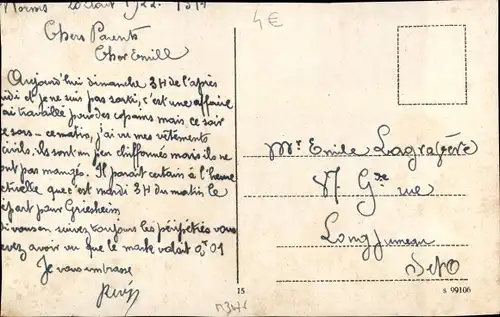 Worms 20 Août 1922
4€
Chers Parents
Cher Emill
Aujourd'hui dimanche 3H de l'après
idi et je ne suis pas sorti, c'est une affaire
ai travaillé pour des copains mais ce soir
ce sors - ce matin, j'ai vu mes vêtements
civils, ils sont un peu chiffonnés mais ils ne
ont pas mangés. Il parait certain à l'heure
ctuelle que c'est mardi 3H du matin le
épart pour Griesheim
si vous en suivez toujours les péripéties vous
evez avoir vu que le mark valait 0,01
Je vous embrasse
Mr Emile Lagrafière
Gde rue
Longjumeau
S et O
15
s 99106